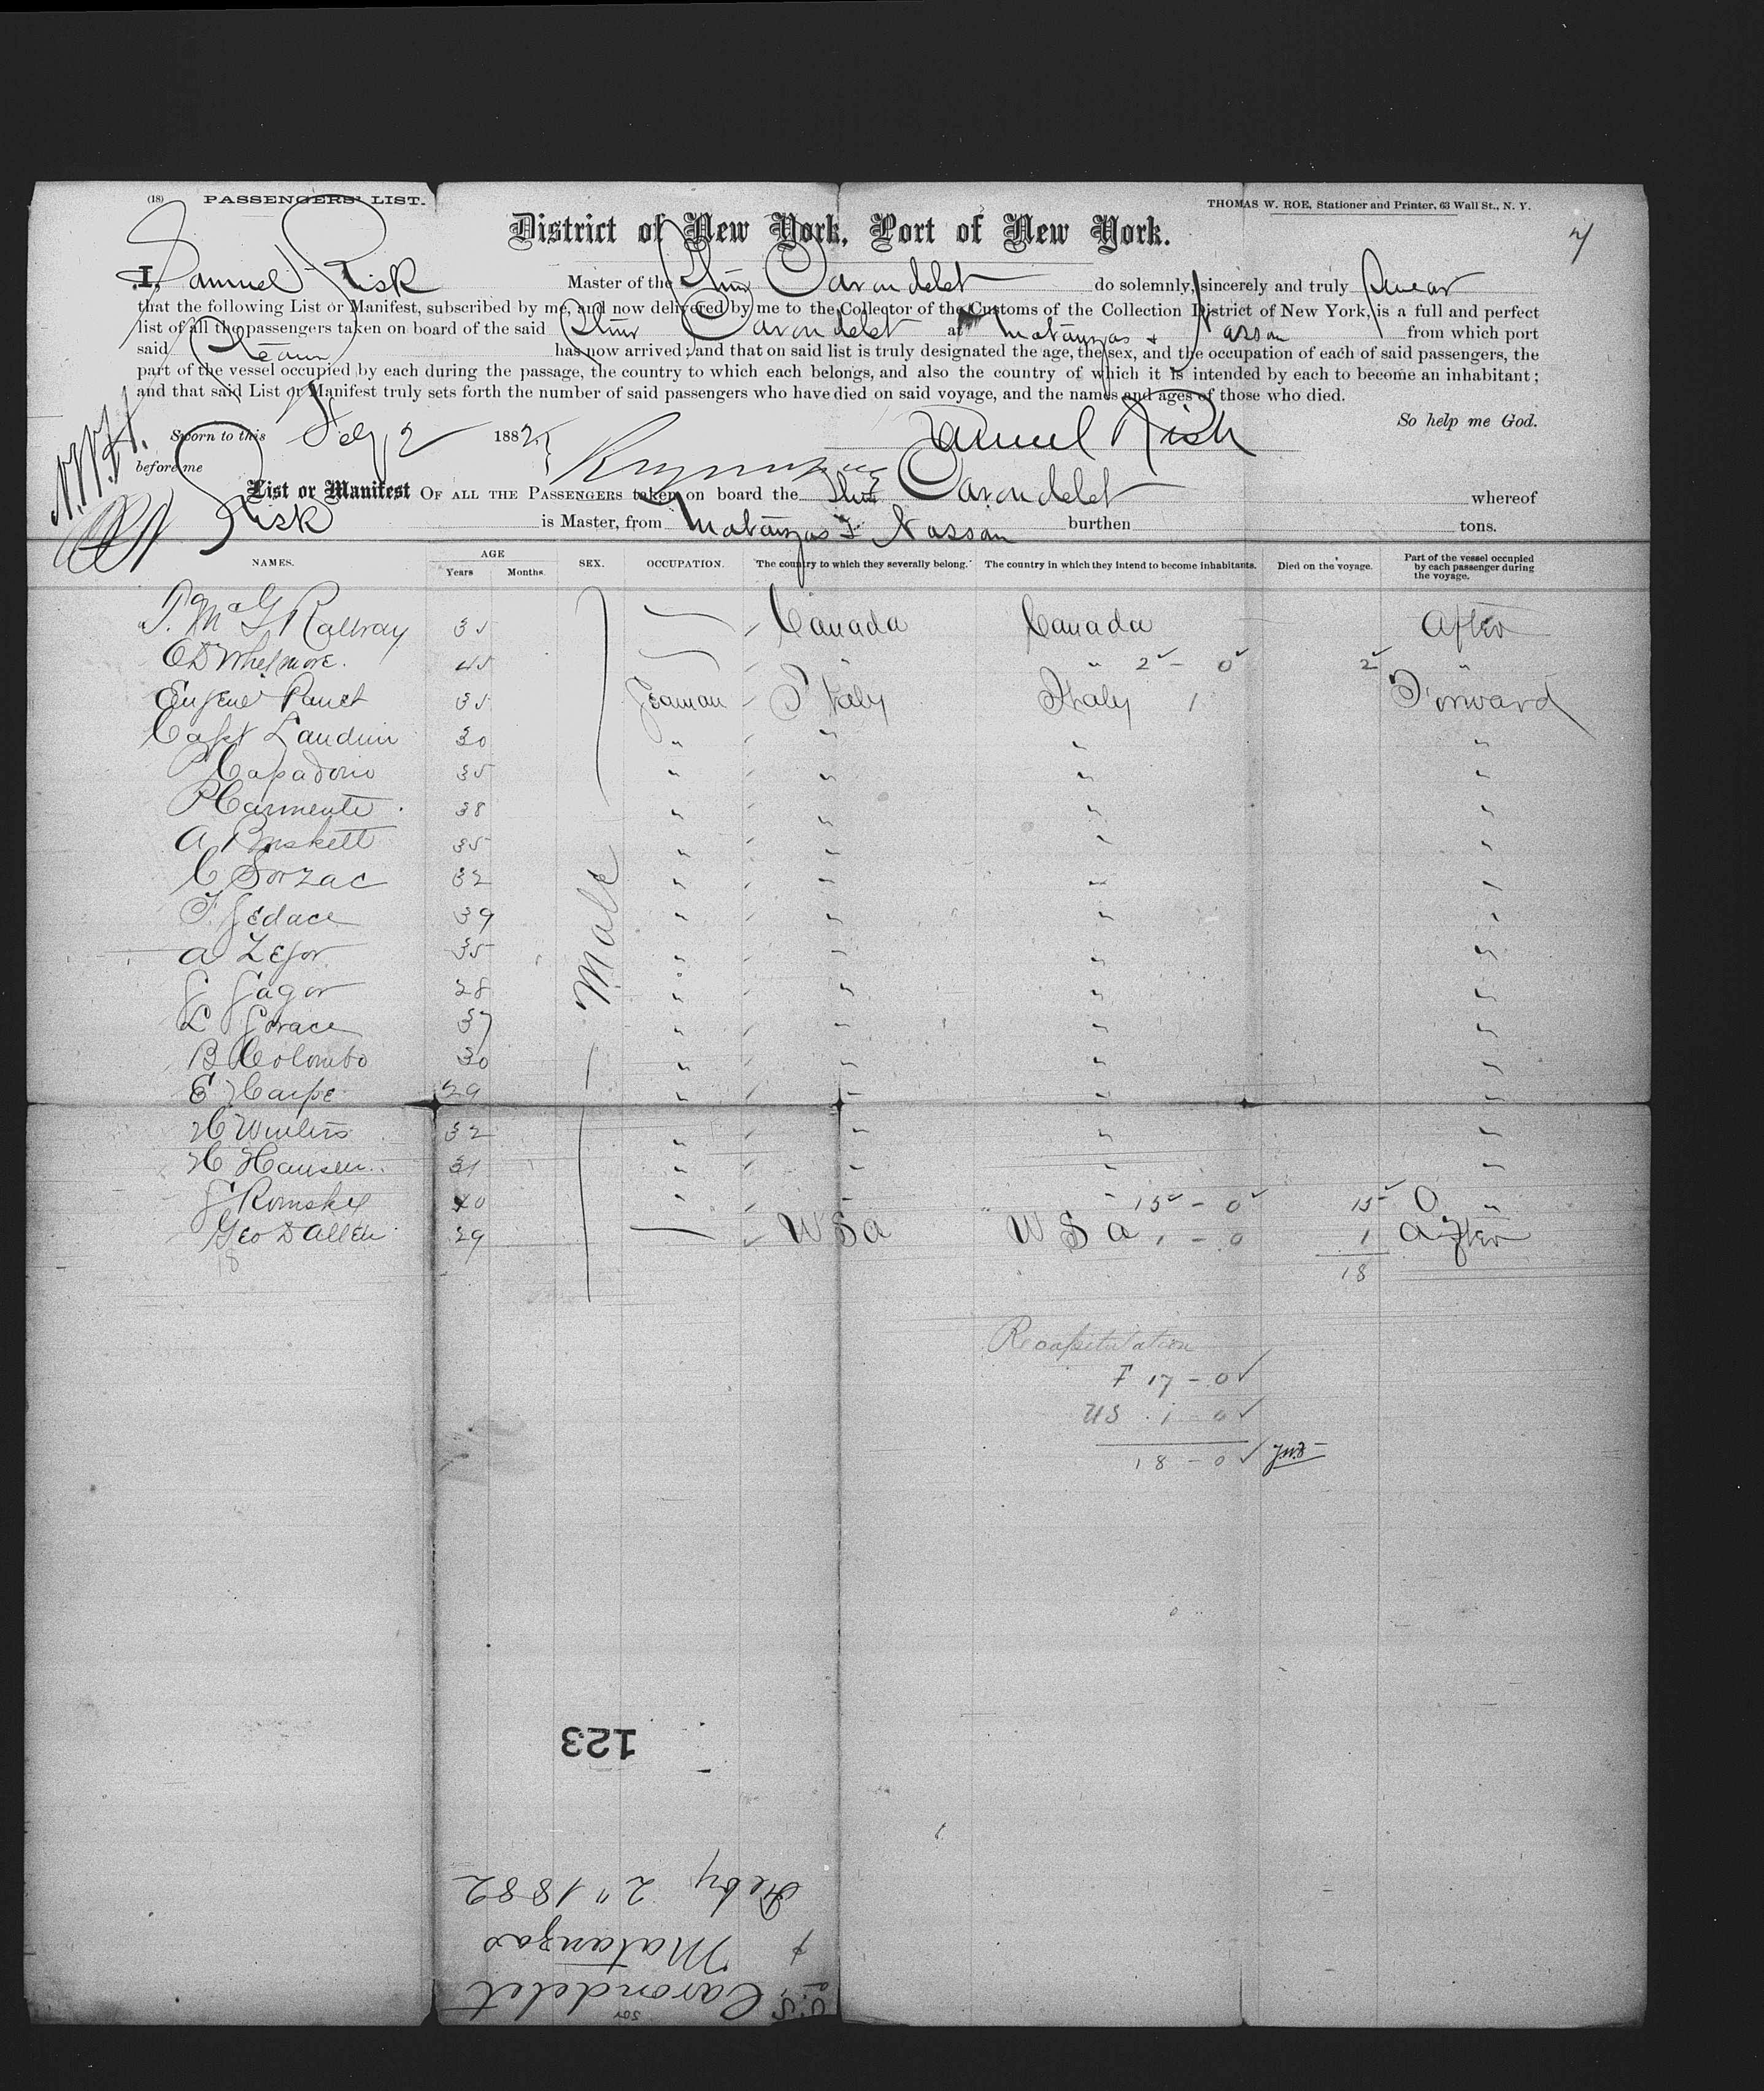 (18) PASSENGERS' LIST.
THOMAS W. ROE, Stationer and Printer, 63 Wall St., N. Y.
District of New York, Port of New York.
I, Samuel Risk Master of the Stmr Carondelet do solemnly, sincerely and truly swear
that the following List or Manifest, subscribed by me, and now delivered by me to the Collector of the Customs of the Collection District of New York, is a full and perfect
list of all the passengers taken on board of the said Stmr Carondelet at Matanzas + Nassau from which port
said Steamr has now arrived; and that on said list is truly designated the age, the sex, and the occupation of each of said passengers, the
part of the vessel occupied by each during the passage, the country to which each belongs, and also the country of which it is intended by each to become an inhabitant;
and that said List or Manifest truly sets forth the number of said passengers who have died on said voyage, and the names and ages of those who died.
So help me God.
Sworn to this Feby 2 1882
Samuel Risk
before me
List or Manifest OF ALL THE PASSENGERS taken on board the Stmr Carondelet whereof
Risk is Master, from Matanzas & Nassau burthen tons.
NAMES. AGE Years Months. SEX. OCCUPATION. The country to which they severally belong. The country in which they intend to become inhabitants. Died on the voyage. Part of the vessel occupied by each passenger during the voyage.
35 Canada Canada After
45 " " 2 - 0 2 "
Eugene 35 Seaman Italy Italy 1 Forward
Capt Landini 30 " " " "
P Capadono 35 " " " "
P Carmenti 38 " " " "
A 35 " " " "
C Sorzac 32 " " " "
F Jedace 39 " " " "
A Zefor 35 " " " "
J Jagor 28 " " " "
L Jorace 37 " " " "
B Colombo 30 " " " "
E Harpe 29 " " " "
H 32 " " " "
H Hansen 31 " " " "
J Romsky 40 " " " 15 - 0 15 0 "
Geo D Allen 29 U S A U S A 1 - 0 1 After
18
18
Male
Recapitulation
F 17 - 0
US 1 - 0
18 - 0
123
Feby 2" 1882
Matanzas
S.S. Carondelet